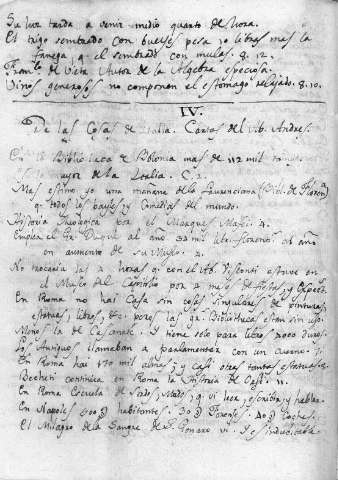 Su luz tarda a venir medio quarto de hora.
El trigo sembrado con bueyes pesa 10 libras mas la
fanega q. el sembrado con mulas. 8. 12.
Fran.co de Vieta Autor de la Algebra especiosa.
Vinos generosos no componen el estomago relajado. 8. 10.
IV.
De las Cosas de Italia. Cartas del Ab. Andres.
Biblioteca de Bolonia mas de 112 mil
mayor de la Italia. C. 2.
Mas estimo yo una mañana de la Laurenciana (Bibl. de Floren.a
q. todos los bayles y comedias del mundo.
Historia por el Marques Maffei. 4.
Emplea el Gr. Duque al año 32 mil al año
en aumento de su Museo. 4.
No trocaria las 2 horas q. con el Ab. Visconti estuve en
el Museo del Capitolio por 2 meses de fiestas, y
En Roma no hai Casa sin cosas singulares de pinturas,
estatuas, libros, etc. pero las Bibliotecas estan sin
Menos la de Casanate. I tiene solo para libros 2000 duros.
Los Antiguos llamaban a parlamentar con un cuerno.
En Roma hai 170 mil almas; y casi otras tantas estatuas.
Becheti continua en Roma la Historia de Orsi. 11.
En Roma Escuela de Sordos, Mudos, q. vi leer, escribir, y hablar.
En Napoles 400 habitantes. 30 Forenses. 40 Coches.
El Milagro de la Sangre de S. Genaro vi. I es indubitable